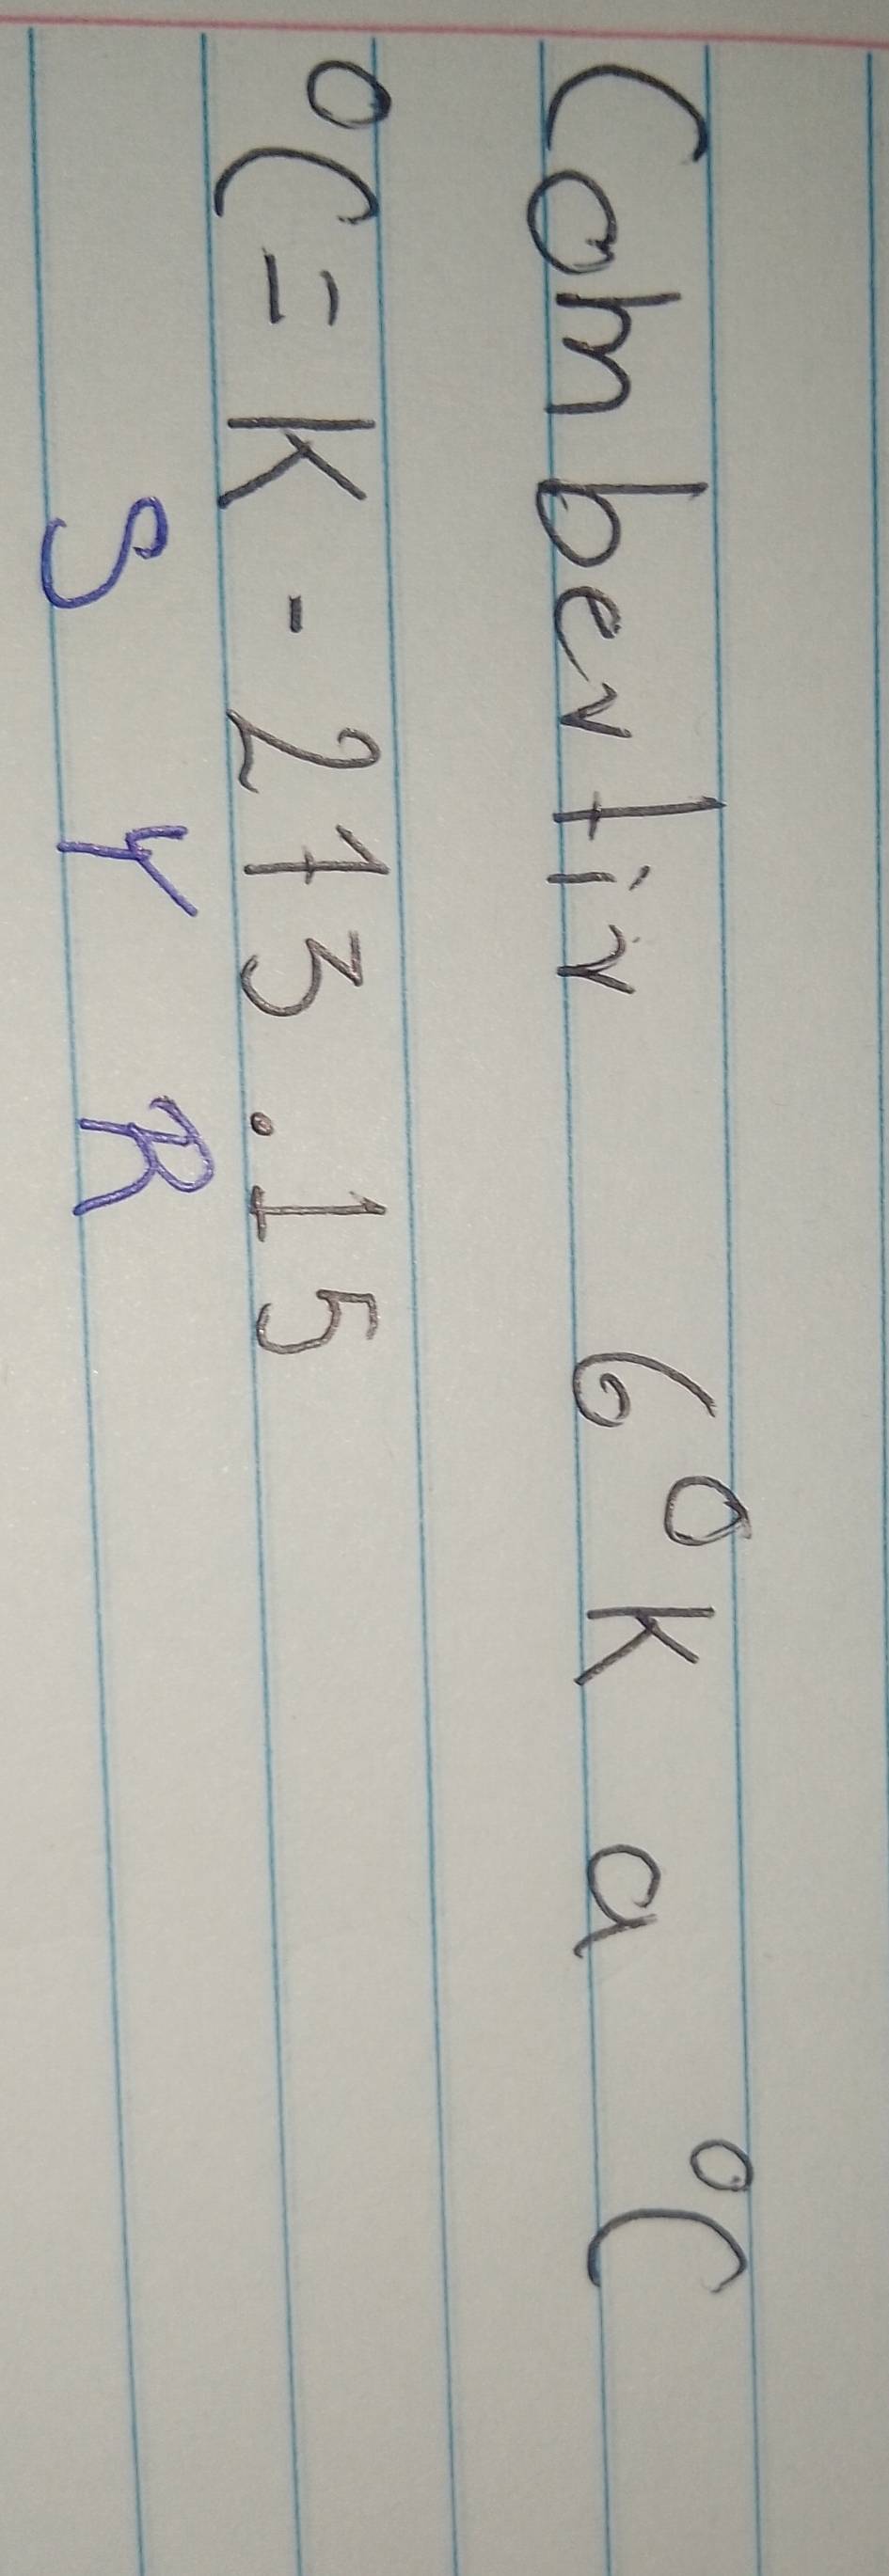 Conbertir 6°K a °C
°C = K - 273.15
S Y R